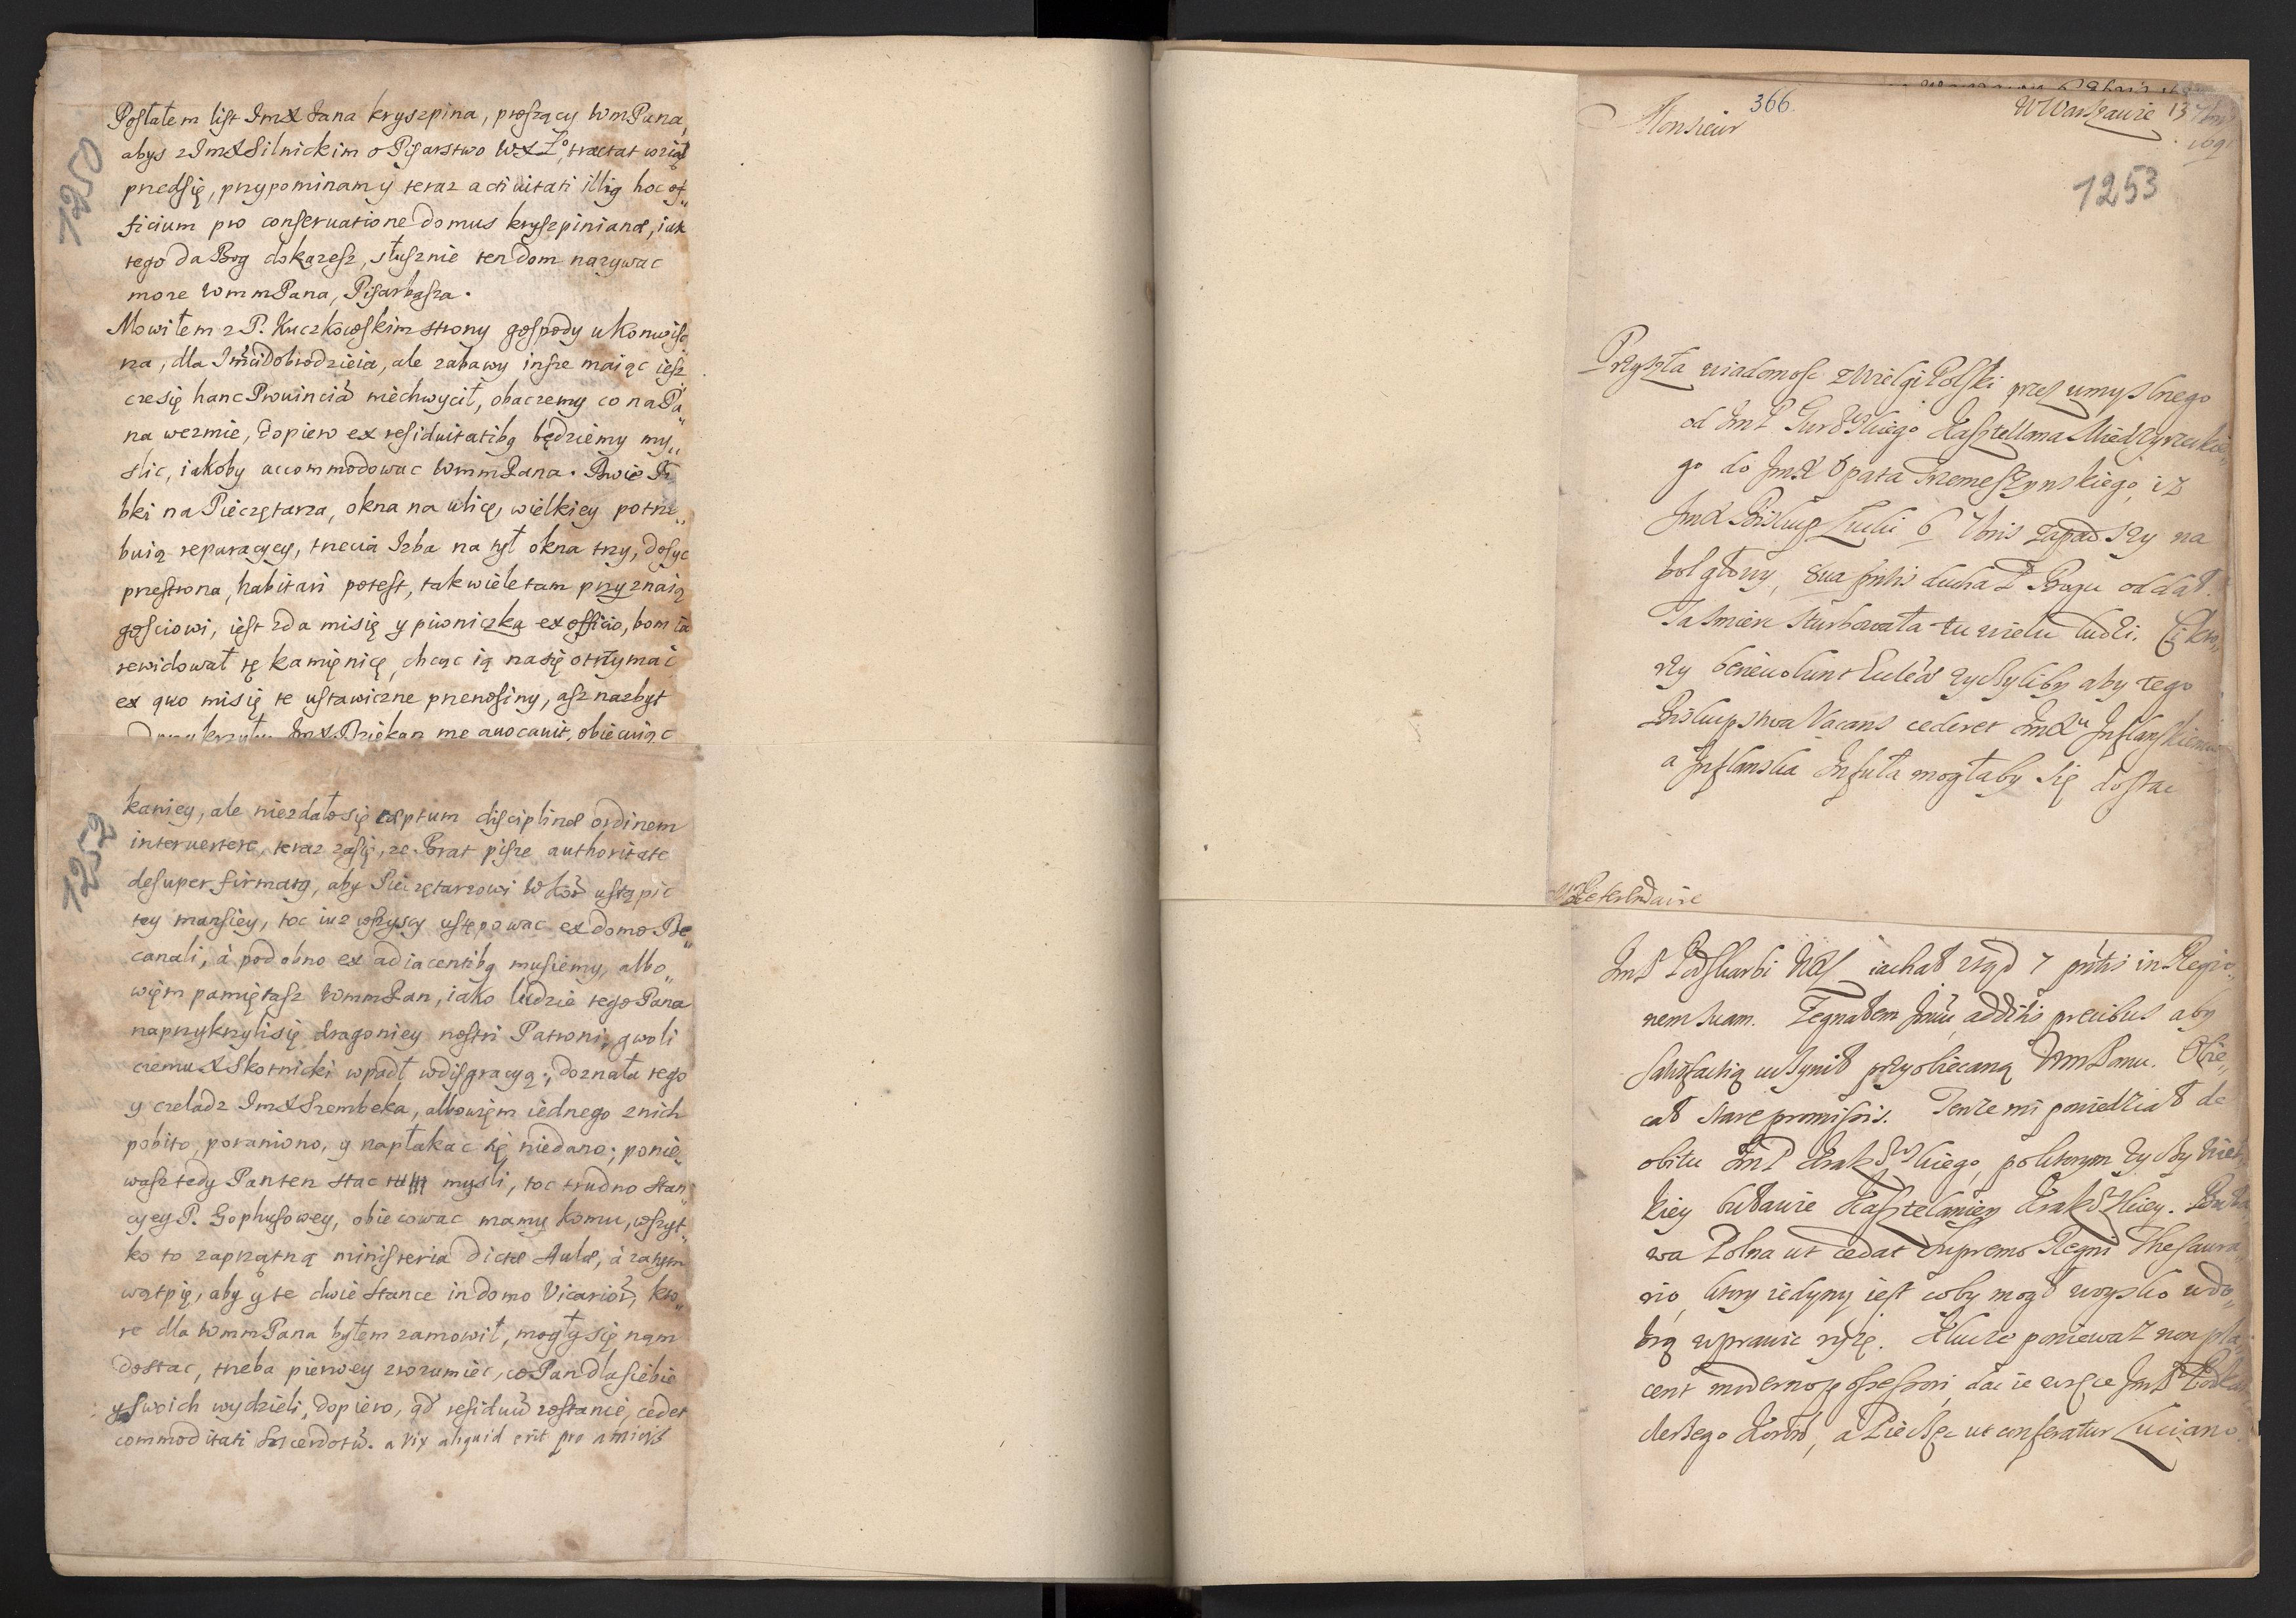 1250
Posłałem list JmX Jana kryszpina, proszący WmPana,
abys z JmX Silnickim o Pisarstwo WXLo, tractat wziął
przedsię, przypominam ÿ teraz activitati illig hoc of„
ficium pro conservatione domus kryszpinianæ, iak
tego da Bog dokażesz, słusznie ten dom nazywac
może WmmPana, Pisarbasza.
Mowiłem z P. Kuczkowskim strony gospody u Konwisa
rza, dla Jmci Dobrodzieia, ale zabawy insze maiąc iesz
cze się hanc Prouincia nie chwycił, obaczemy co na Pa„
na wezmie, dopiero ex residuitatibg będziemy my„
slic, iakoby accommodowac WmmPana. Dwie
bki na Pieczętarza, okna na ulicę, wielkiey potrze„
buią reparacyey, trzecia Izba na tył okna trzy, dosyc
przestrona, habitari potest, tak wiele tam przyznaią
gosciowi, iest zda mi się y piwniczka ex officio, bom ia
rewidował tę kamięnicę, chcąc ią na się otrzymac
ex quo mi się te ustawiczne przenosiny, asz nazbyt
JmX Dziekan me auocauit, obiecuiąc
1252
kaniey, ale niezdało się cæptum disciplinæ ordinem
interuertere, teraz zasię, ze Brat pisze authoritate
desuper firmatg, aby Pieczętarzowi ustąpic
tey mansiey, toc iuz wszyscy ustępowac ex domo De„
canali, à podobno ex adiacentibg musiemy, albo„
więm pamiętasz WmmPan, iako ludzie tego Pana
naprzykrzyli się dragoniey nostri Patroni, gwoli
czemu X Skotnicki wpadł w disgracyą:, doznała tego
y czeladz JmX Szembeka, albowięm iednego z nich
pobito, poraniono, y napłakac się niedano; ponie„
wasz tedy Pan ten stac mysli, toc trudno stan„
cyey P. Gophusowey, obiecowac mamy komu, wszyt„
ko to zaprzątną ministeria dictæ Aulæ, à zatym
wątpię, aby y te dwie stance in domo Vicarioru, kto„
re dla WmmPana byłem zamowił, mogły się nąm
dostac, trzeba pierwey zrozumiec, co Pan dla siebie
y swoich wydzieli, dopiero, qd residuu zostanie, cedet
commoditati Sacerdotu. a vix aliquid erit pro amicis
366.
Monsieur
W Warszawie 13 7bris
1253
Przyszła wiadomosc z Wielgi Polski przes umyslnego
od JmP Kasztellana Miedzyrzeckie„
go do JmX Opata Trzemeszynskiego, iz
JmX Biskup Łucki 6 7bris zapadszy na
bol głowy, 8ua pntis ducha P. Bogu oddał.
Ta smierc sturbowała tu wielu ludzi. Ci kto„
rzy beneuolunt zyczyliby aby tego
Biskupstwa Vacans cederet JmXu Inflanskiemu
a Inflanska Insuła mogłaby się dostac
JmP Podskarbi iachał ztąd 7 pntis in Regio„
nem suam. Zegnałem Jmci additis precibus aby
satisfactią uczynił przyobiecaną WmPanu. Obie„
cał stare promissis. Tenze mi powiedział de
obitu JmP Krakowskiego, po ktorym zyczy
kiey buławie Kasztelaniey Krakowskiey. Buła
wa Polna ut cedat supremo Regni Thesaura„
rio, ktory iedyny iest coby mogł woysko
wprawic ryzę. Klucze poniewaz non pla„
cent moderno possessori, dac ie w ręce JmP
Koron, a Pieczęc ut conferatur Luciano.